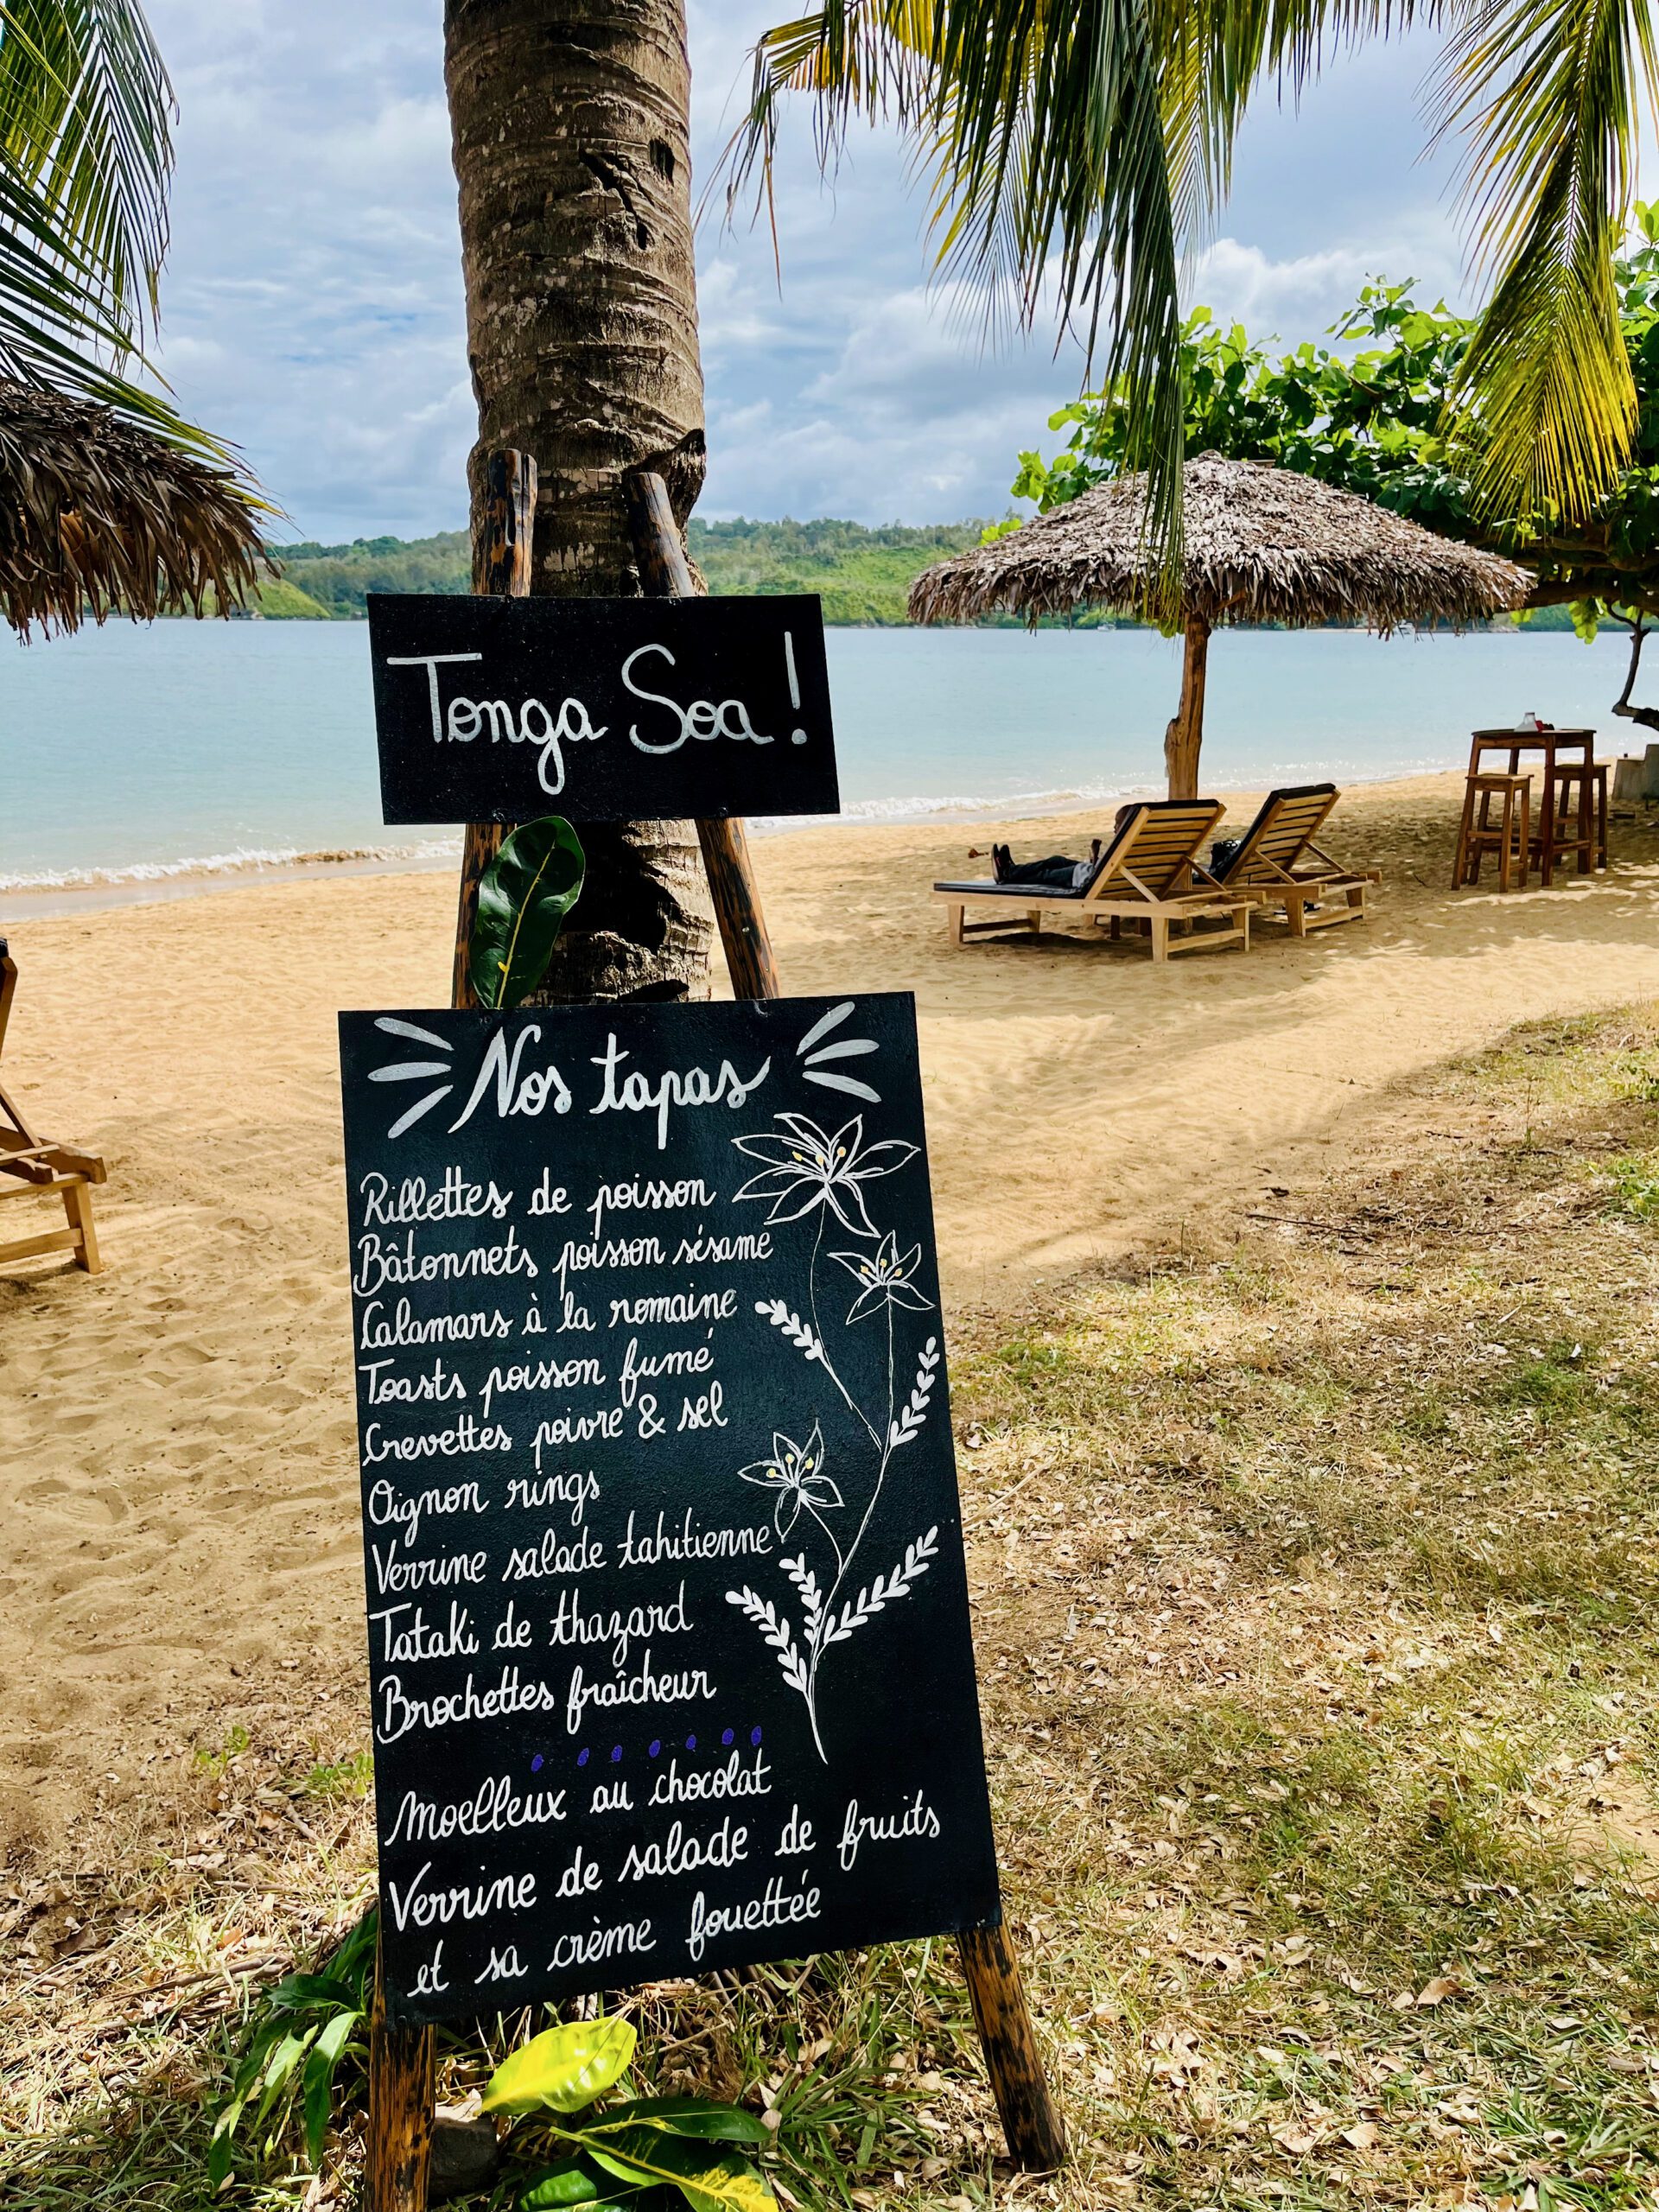 Tonga Soa !
Nos tapas
Rillettes de poisson
Bâtonnets poisson sésame
Calamars à la romaine
Toasts poisson fumé
Crevettes poivre & sel
Oignon rings
Verrine salade tahitienne
Tataki de thazard
Brochettes fraîcheur
Moelleux au chocolat
Verrine de salade de fruits
et sa crème fouettée